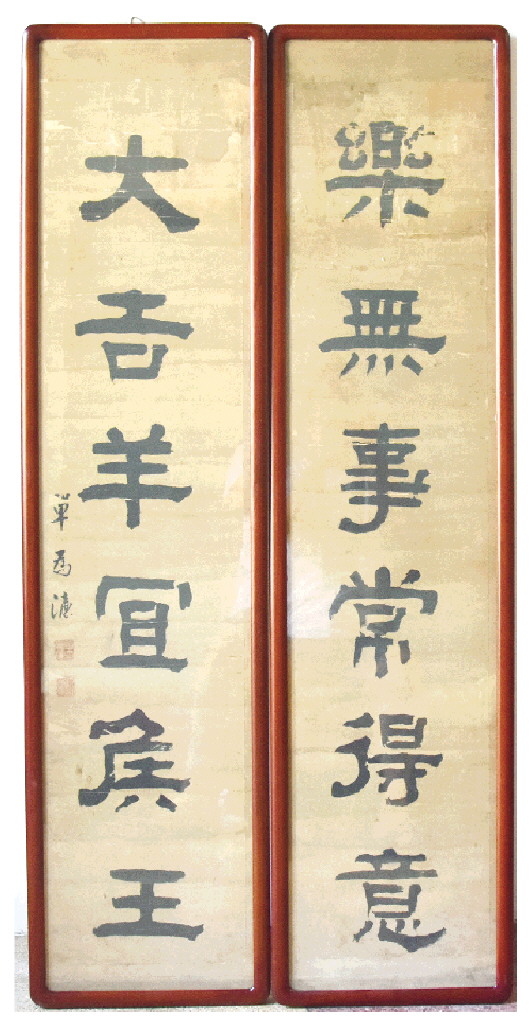 樂無事常得意
大吉羊宜矦王
單為濂